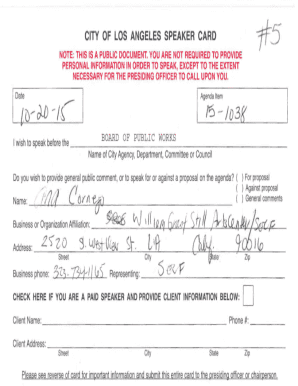 CITY OF LOS ANGELES SPEAKER CARD
#5
NOTE: THIS IS A PUBLIC DOCUMENT. YOU ARE NOT REQUIRED TO PROVIDE
PERSONAL INFORMATION IN ORDER TO SPEAK, EXCEPT TO THE EXTENT
NECESSARY FOR THE PRESIDING OFFICER TO CALL UPON YOU.
Date Agenda Item
10-20-15 15-1038
I wish to speak before the BOARD OF PUBLIC WORKS
Name of City Agency, Department, Committee or Council
Do you wish to provide general public comment, or to speak for or against a proposal on the agenda? ( ) For proposal
( ) Against proposal
( ) General comments
Name: Cornejo
Business or Organization Affiliation: William Grant Still
Address: 2520 S. West View St. LA 90016
Street City State Zip
Business phone: 323-734-1165 Representing:
CHECK HERE IF YOU ARE A PAID SPEAKER AND PROVIDE CLIENT INFORMATION BELOW:
Client Name: Phone #:
Client Address:
Street City State Zip
Please see reverse of card for important information and submit this entire card to the presiding officer or chairperson.